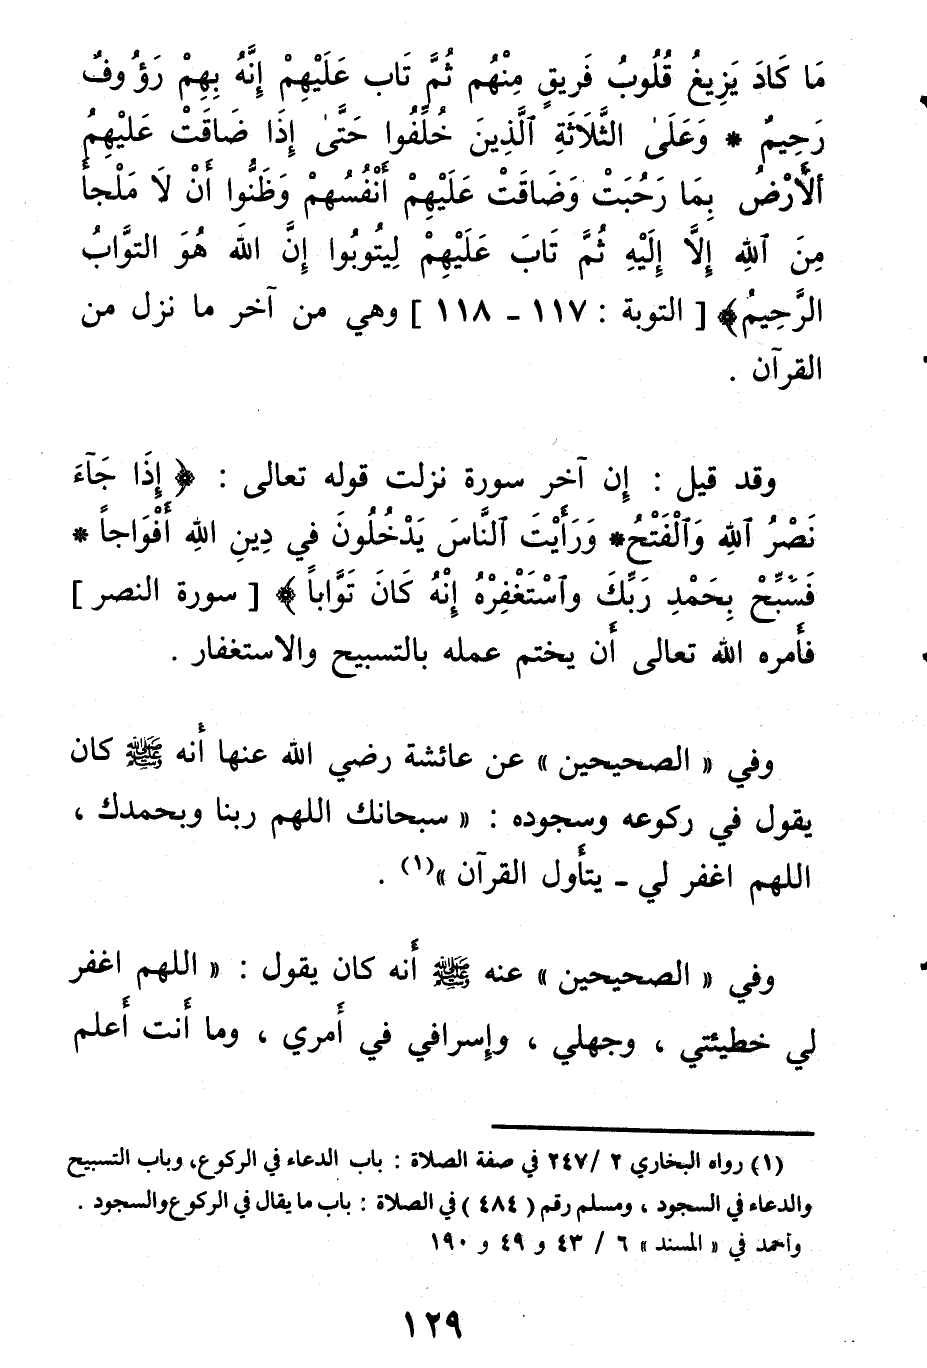 مَا كَادَ يَزِيغُ قُلُوبُ فَرِيقٍ مِنْهُم ثُمَّ تَاب عَلَيْهِمْ إِنَّهُ بِهِمْ رَؤُوفٌ
رَحِيمٌ * وَعَلَىٰ الثَّلَاثَةِ ٱلَّذِينَ خُلِّفُوا حَتَّىٰ إِذَا ضَاقَتْ عَلَيْهِمُ
ٱلْأَرْضُ بِمَا رَحُبَتْ وَضَاقَتْ عَلَيْهِمْ أَنْفُسُهمْ وَظَنُّوا أَنْ لَا مَلْجأَ
مِنَ ٱللهِ إِلَّا إِلَيْهِ ثُمَّ تَابَ عَلَيْهِمْ لِيتُوبُوا إِنَّ اللّه هُوَ التوَّابُ
الرَّحِيمُ﴾ [ التوبة : ١١٧ ـ ١١٨ ] وهي من آخر ما نزل من
القرآن .
وقد قيل : إن آخر سورة نزلت قوله تعالى : ﴿ إِذَا جَآءَ
نَصْرُ ٱللهِ وَٱلْفَتْحُ* وَرَأَيْتَ ٱلنَّاسَ يَدْخُلُونَ في دِينِ اللهِ أَفْوَاجاً *
فَسَبِّحْ بِحَمْدِ رَبِّكَ وٱسْتَغْفِرْهُ إِنَّهُ كَانَ تَوَّاباً ﴾ [ سورة النصر ]
فأمره الله تعالى أن يختم عمله بالتسبيح والاستغفار .
وفي « الصحيحين » عن عائشة رضي الله عنها أنه ﷺ كان
يقول في ركوعه وسجوده : « سبحانك اللهم ربنا وبحمدك ،
اللهم اغفر لي ـ يتأول القرآن »(١) .
وفي « الصحيحين » عنه ﷺ أنه كان يقول : « اللهم اغفر
لي خطيئتي ، وجهلي ، وإسرافي في أمري ، وما أنت أعلم
(١) رواه البخاري ٢ /٢٤٧ في صفة الصلاة : باب الدعاء في الركوع، وباب التسبيح
والدعاء في السجود ، ومسلم رقم ( ٤٨٤ ) في الصلاة : باب ما يقال في الركوع والسجود .
وأحمد في « المسند » ٦ / ٤٣ و ٤٩ و ١٩٠
١٢٩